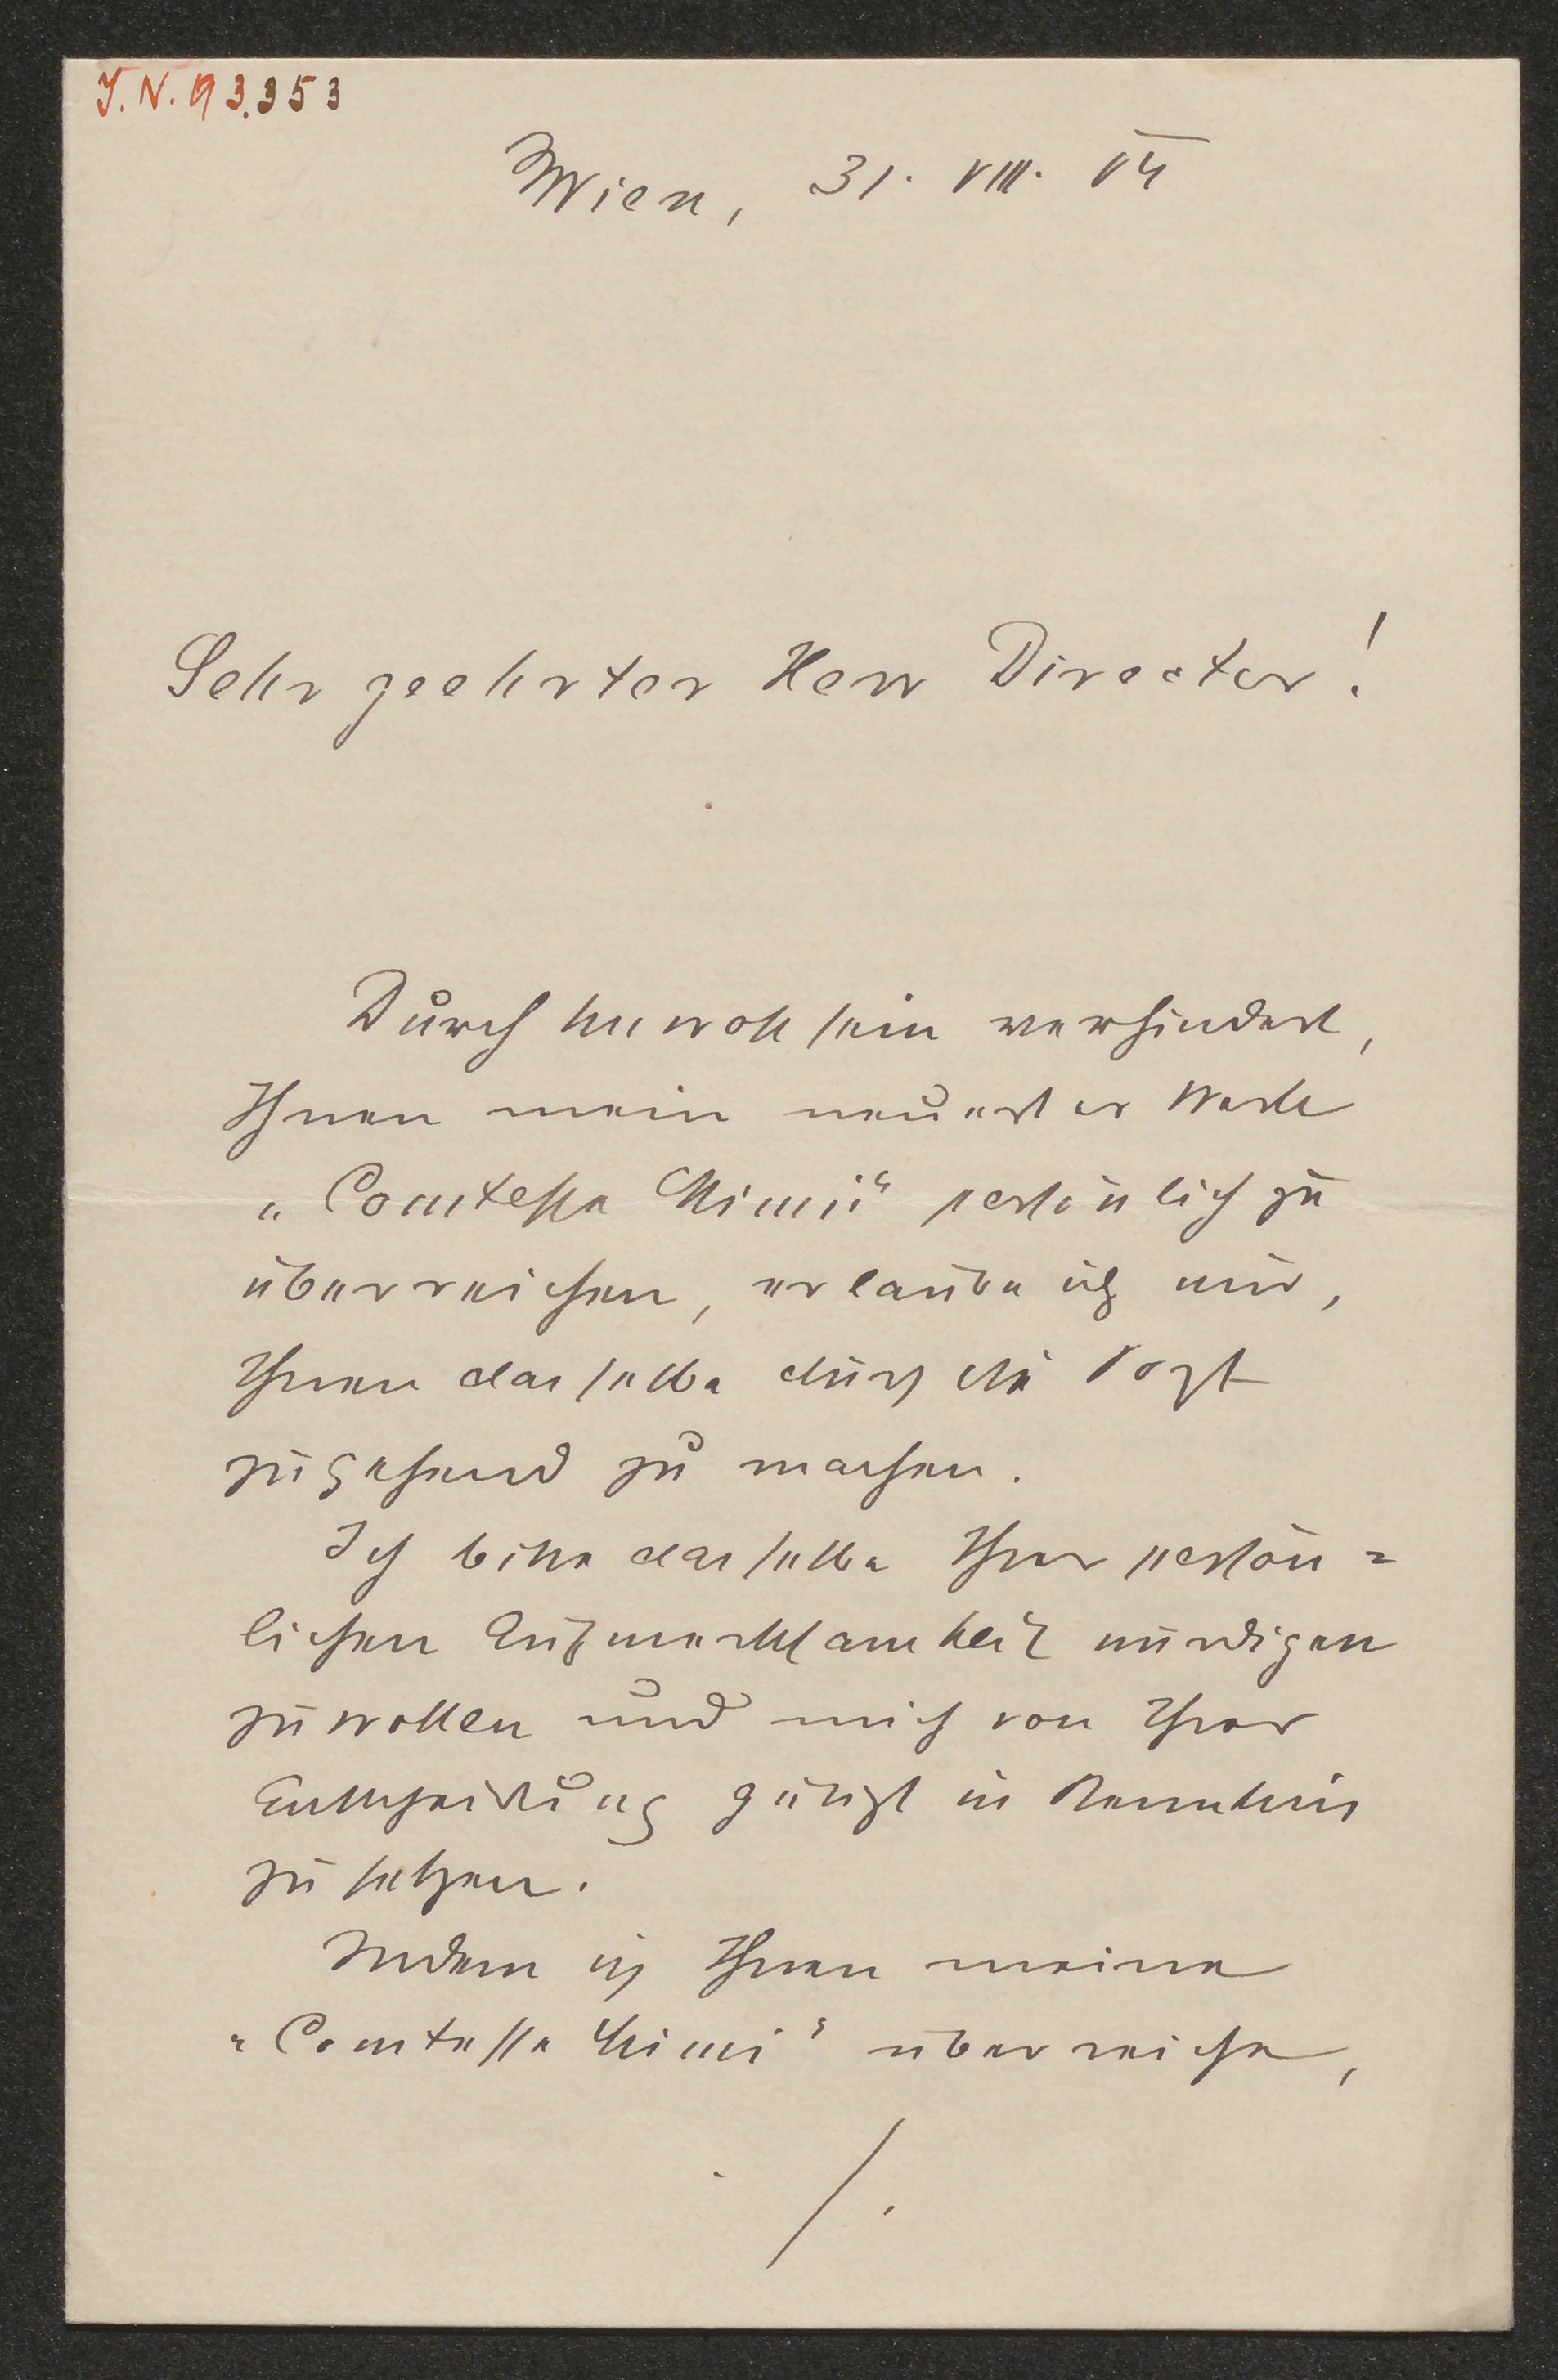 I.N. 93.353
Wien, 31. VIII. 04
Sehr geehrter Herr Director!
Durch Unwohlsein verhindert,
Ihnen mein neuestes Werk
„Comtesse Mimi“ persönlich zu
überreichen, erlaube ich mir,
Ihnen dasselbe durch die Post
zugehend zu machen.
Ich bitte dasselbe Ihrer persön=
lichen Aufmerksamkeit würdigen
zu wollen und mich von Ihrer
Entscheidung gütigst in Kenntnis
zu setzen.
Indem ich Ihnen meine
„Comtesse Mimi“ überreiche,
/.